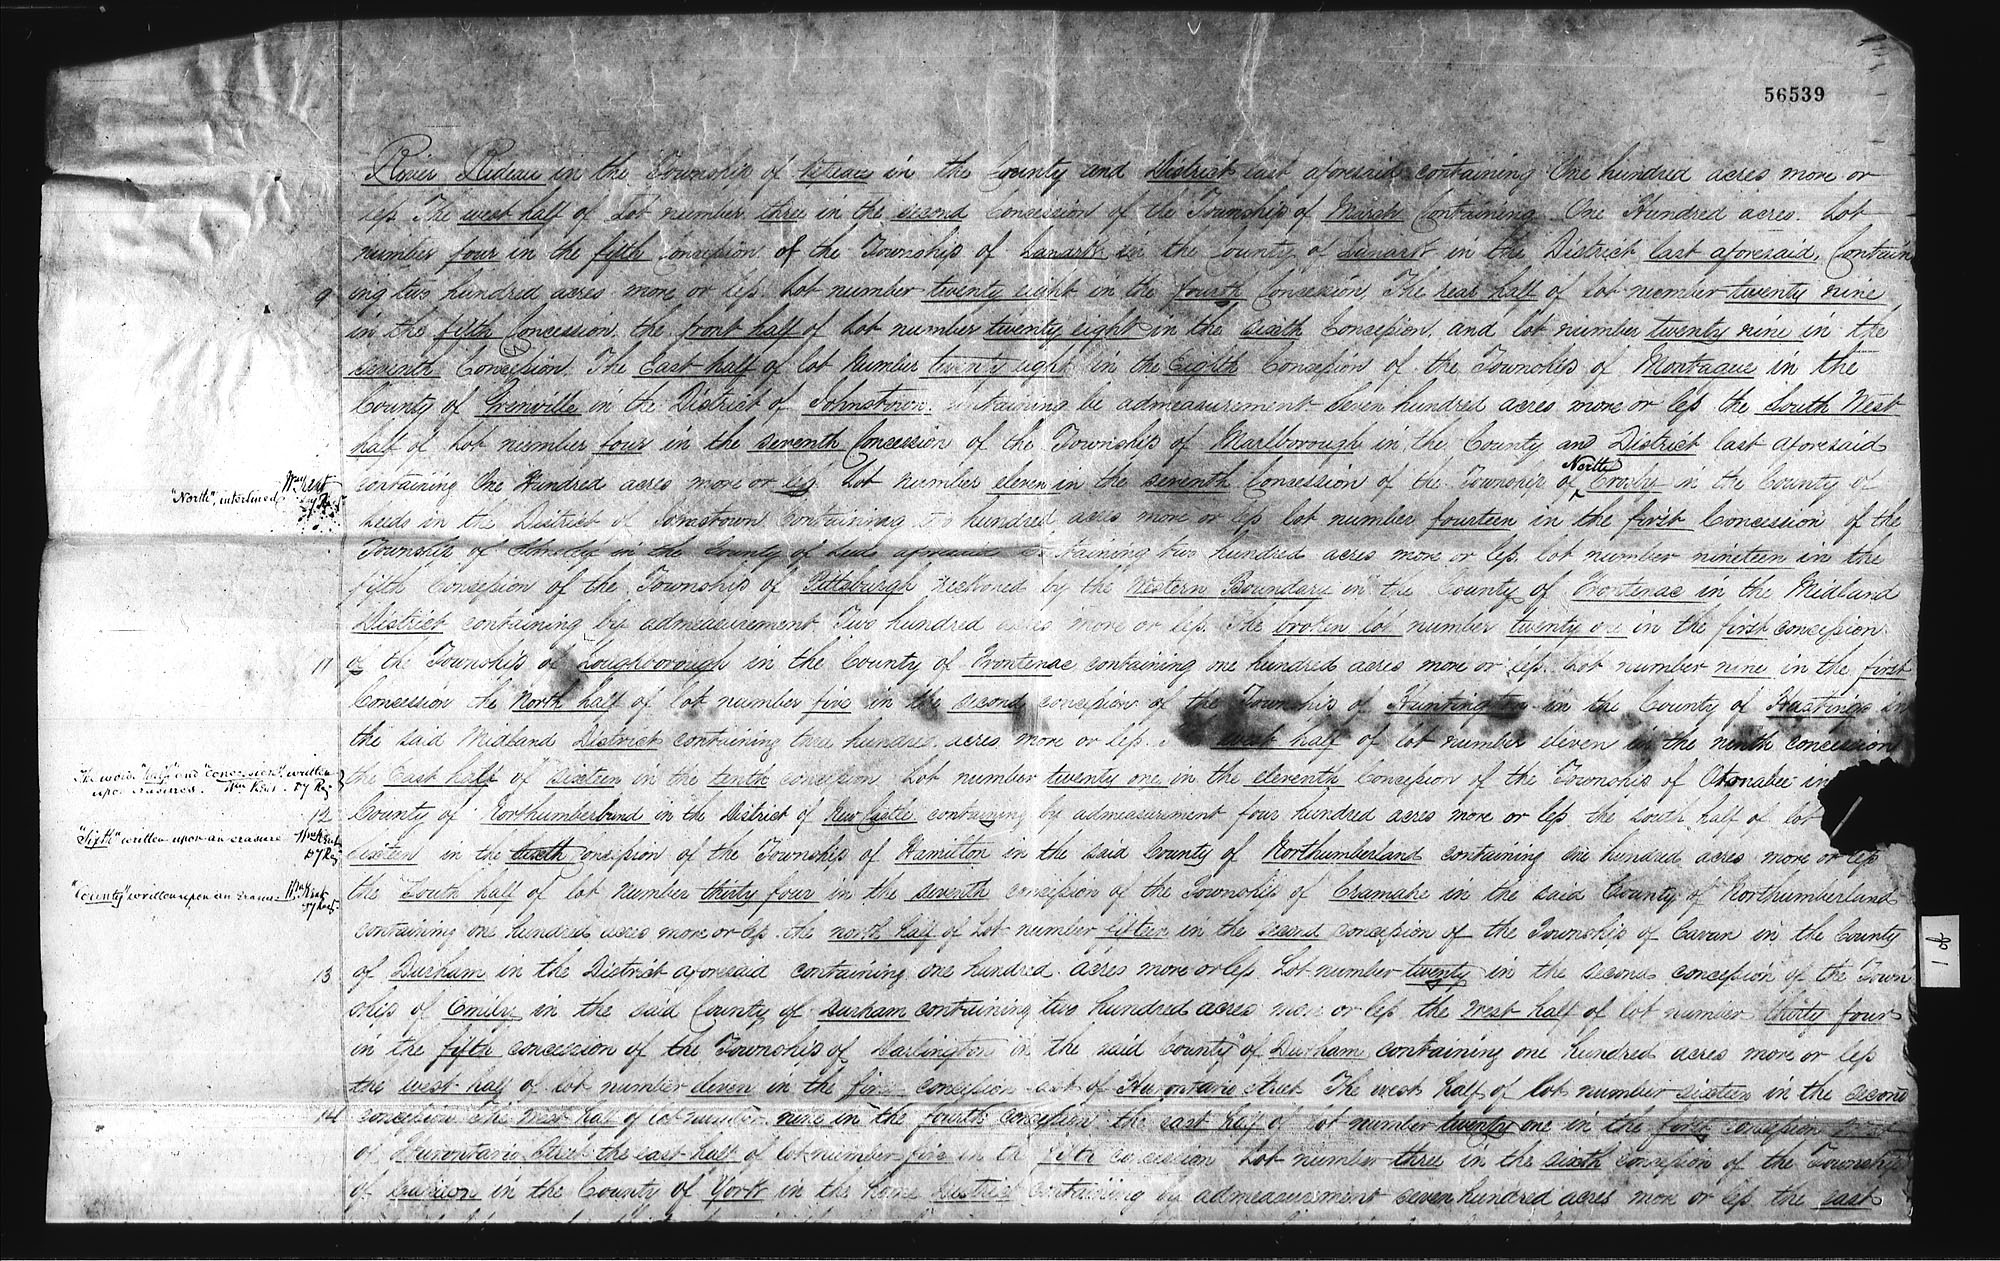 56539
River Rideau in the Township of in the County and District last aforesaid containing One hundred acres more or
less The west half of Lot number three in the second Concession of the Township of March Containing One Hundred acres. Lot
number four in the fifth Concession of the Township of Lanark in the County of Lanark in the District last aforesaid, Contain
9 ing two hundred acres more or less Lot number twenty eight in the fourth Concession, The rear half of lot number twenty nine
in the fifth Concession. the front half of Lot number twenty eight in the sixth Concession. and lot number twenty nine in the
seventh Concession. The East half of lot Number twenty eight in the Eighth Concession of the Township of Montague in the
County of Grenville in the District of Johnstown. containing be admeasurement Seven hundred acres more or less the South West
half of Lot number four in the seventh Concession of the Township of Marlborough in the County and District last aforesaid
North
"North", interlined Wm Kent containing One Hundred acres more or less Lot number eleven in the seventh Concession of the Township of Crosby in the County of
Leeds in the District of Johnstown Containing two hundred acres more or less lot number fourteen in the first Concession of the
Township of in the County of Leeds aforesaid containing two hundred acres more or less. lot number nineteen in the
fifth Concession of the Township of Pittsburgh reckoned by the Western Boundary in the County of Frontenac in the Midland
District containing by admeasurement Two hundred acres more or less. The broken lot number twenty one in the first concession
11 of the Township of Loughborough in the County of Frontenac containing one hundred acres more or less. Lot number nine in the first
Concession the North half of lot number five in the second concession of the Township of Huntingdon in the County of Hastings in
the said Midland District containing three hundred acres more or less. west half of lot number eleven in the ninth concession
The words "half" and "concession" written upon erasures. Wm Kent Dy Reg the East half of sixteen in the tenth concession Lot number twenty one in the eleventh Concession of the Township of Otonabee in
12 County of Northumberland in the District of New Castle containing by admeasurement four hundred acres more or less the south half of lot
"Sixth" written upon an erasure Wm Kent Dy Reg sixteen in the concession of the Township of Hamilton in the said County of Northumberland containing one hundred acres more or less
"County" written upon an erasure Wm Kent Dy Reg the South half of lot number thirty four in the seventh concession of the Township of Cramahe in the said County of Northumberland
containing one hundred acres more or less. the north half of Lot number fifteen in the second concession of the Township of Cavan in the County
13 of Durham in the District aforesaid containing one hundred acres more or less. Lot number twenty in the second concession of the Town
ship of Emily in the said County of Durham containing two hundred acres more or less the West half of lot number thirty four
in the fifth concession of the Township of Darlington in the said county of Durham containing one hundred acres more or less
the west half of lot number eleven in the first concession east of Hurontario street The west half of lot number sixteen in the second
14 concession The west half of lot number nine in the fourth concession the east half of lot number twenty one in the first concession west
of Hurontario Street the east half of lot number five in the fifth concession Lot number three in the sixth concession of the Township
of Caledon in the County of York in the home District containing by admeasurement seven hundred acres more or less the east